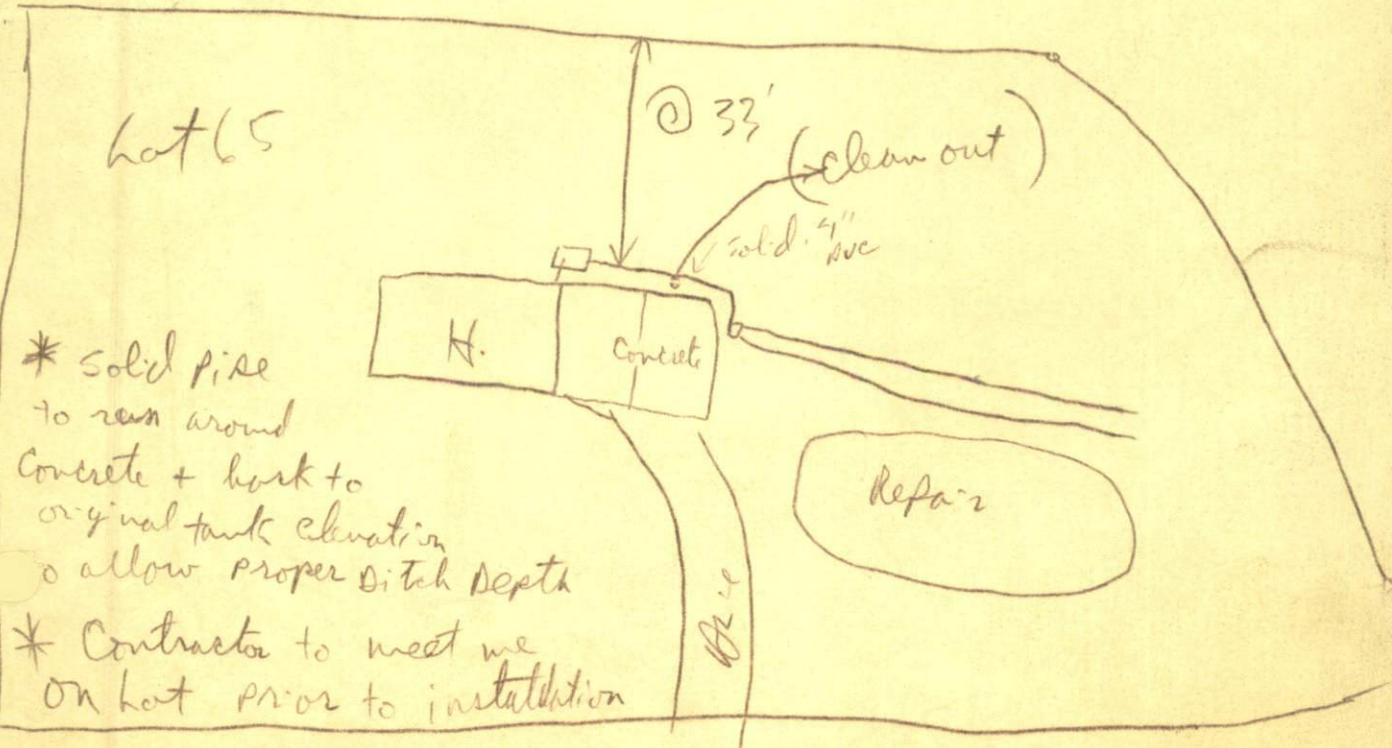 Lot 65
@ 33'
(clean out)
solid 4"
PVC
H.
Concrete
* Solid Pipe
to run around
Concrete + back to
original tank elevation
to allow Proper Ditch Depth
Repair
* Contractor to meet me
on Lot prior to installation